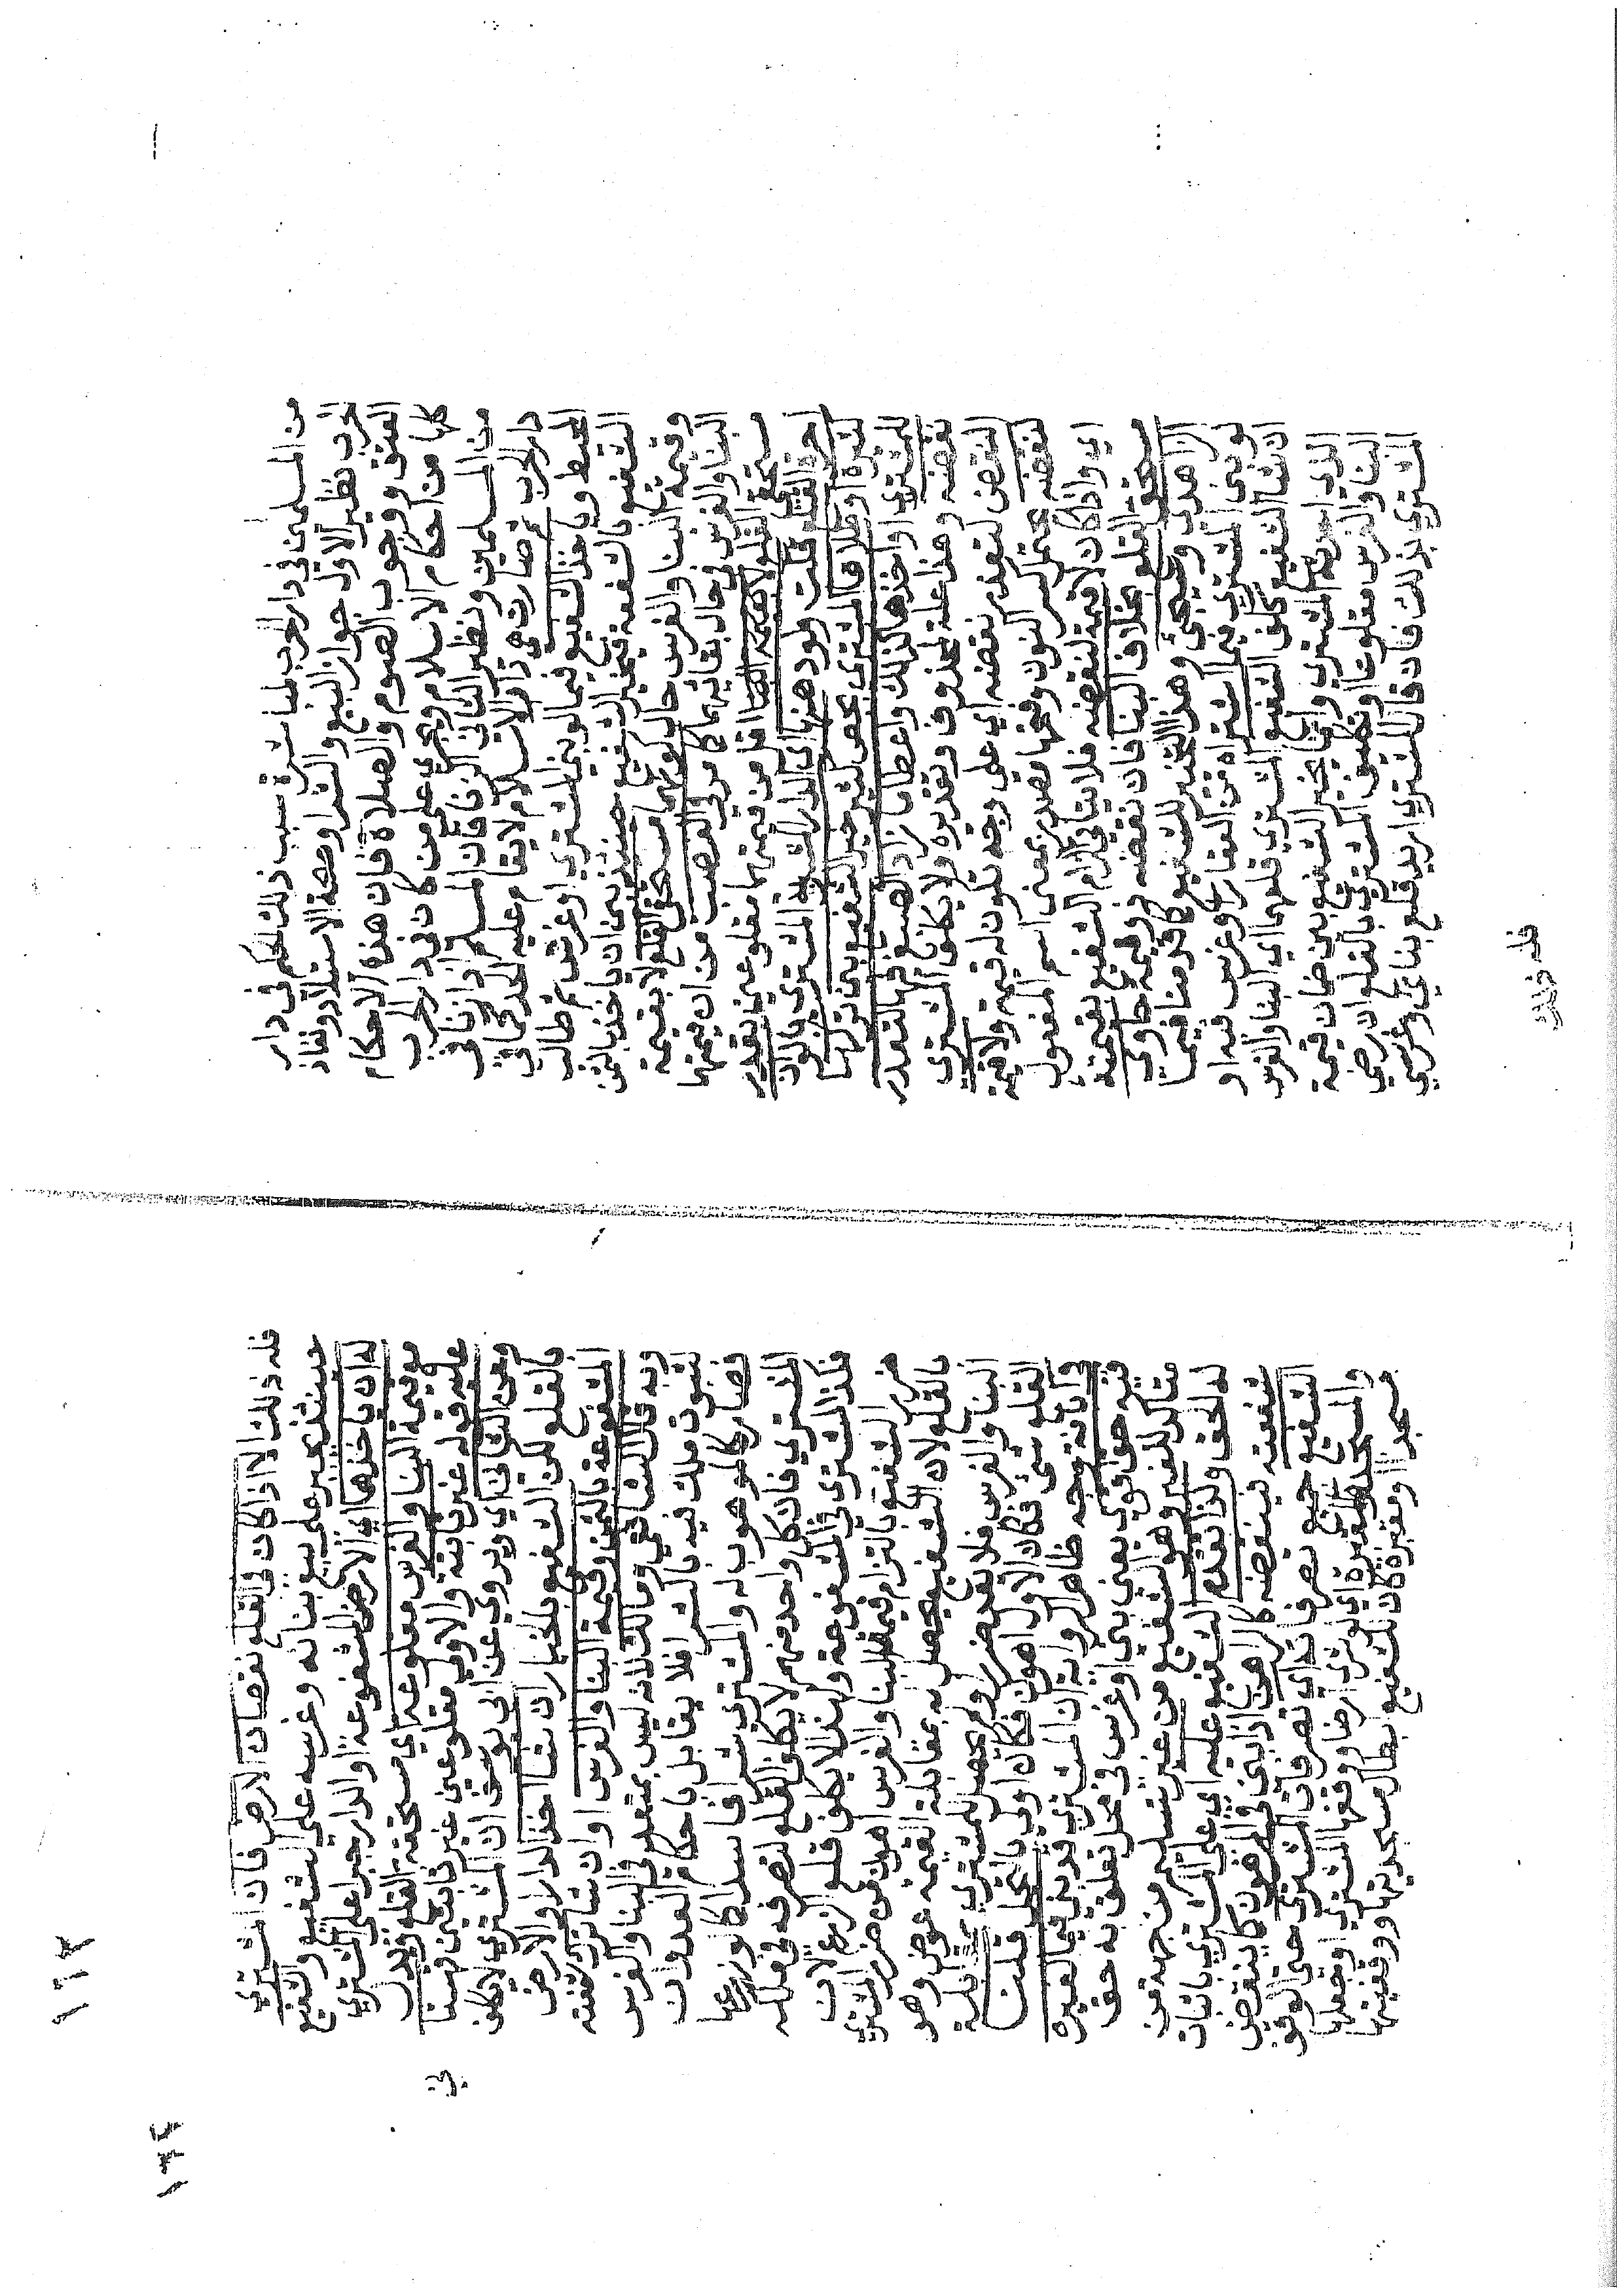 من المسلمين في دار الحرب لمباشرة سبب ذلك الحكم في دار
الحرب نظير الاول جواز البيع والشرا وصحة الاستيلاد ونفاذ
العتق ووجوب الصوم والصلاة فان هذه الاحكام
كلها من احكام الاسلام ويجري علي من كان في دار الحرب
من المسلمين ونظير الثاني الزنا فان المسلم اذا زنا في
دار الحرب ثم صارت هي دار الاسلام لا يقام عليه الحد
وياخذ الشفيع فيما لو بني المشتري او غرس ثم طالب
الشفيع بالشفعة فيخير الشفيع حينئذ بين ان ياخذ بالثمن
وقيمة البنا والغرس حال كونهما مستحقي القلع لا بقيمة
البنا والغرس في حال بقائهما كما مر في الغصب من ان قيمتها
مستحق القلع اقل من قيمتها مقلوعين بقدر
اجرة القلع قلت ولو دهنها اي الدار المشتري بالوان
كثيرة او طلاها المشتري بجص كثير خير الشفيع بين تركها
للمشتري او اخذها كذلك واعطا ما زاد الصبغ فيها لتعذر
نقضه وهذا علة لمحذوف وتقديره ولا يكلف المشتري
النقض لتعذر نقضه اي علي وجه تكون له قيمة ولا قيمة
لنقضه يحتمل كسر النون وفتحها مصدر بمعني اسم المفعول
اي واذا كان لا قيمة لنقضه فلا يتاتي الزام الشفيع بقيمته
مستحق القلع بخلاف البنا فان نقضه ذو قيمة حاوي
الزاهدي وسيجئ وهذا التخيير للشفيع كما قدمنا فيما
لو بني المشتري فيما اشتراه من العقار او غرس فيه او
ان شا الشفيع كلف الشفيع المشتري قلعهما اي البنا والغرس
الذي احدثه المشتري وانما يخير الشفيع بين ضمان قيمة
البنا والغرس مقلوعا وتكليف المشتري بالقلع ان رضي
المشتري بذلك فان قال المشتري اريد قلع بنائي وغرسي
فله ذلك
فله ذلك الا اذا كان في القلع نقصان الارض فان المشتري
حينئذ يجبر علي بيع بنائه وغرسه علي الشفيع والشفيع
له ان ياخذها اي الارض المشفوعة او الدار جبرا علي المشتري
مع قيمة البنا والغرس مقلوعة اي مستحقة القلع ويدل
عليه قوله غير ثابتة والا ولي مقلوعين غير ثابتين فيهما
وعن الثاني اي وروي عن ابي يوسف ان المشتري لا يكلف
بالقلع لكن الشفيع بالخيار ان شا اخذ الدار او الارض
المشفوعة بالثمن وقيمة البنا والغرس وان شا ترك شفعته
وبه قال الشافعي ومالك لانه ليس بمتعد في البنا والغرس
لثبوت ملكه فيه بالشرا فلا يقابل باحكام العدوان
فصار كالموهوب له والمشتري شرا فاسدا كما لو زرعها
المشتري فان كل واحد منهم لا يكلف القلع لتصرفه في ملكه
فكذا المشتري في المشفوعة ولهذا لا يكلف قلع الزرع لان
ضرر الشفيع بالتزام قيمة البنا والغرس اهون من ضرر المشتري
بالقلع لان الشفيع يحصل له بمقابلة القيمة عوض وهو
البنا والغرس فلا يعد ضررا ولم يحصل للمشتري بمقابلة
القلع شئ فكان الاول اهون فكان اولي بالتحمل قلت
وما بانه توجه ظاهر الرواية ان المشتري قد بني فيما لغيره
فيه حق قوي يعني بني او غرس في محل تعلق به حق
متاكد للغير وهو الشفيع من غير تسليط من جهة من
له الحق ولذا تقدم الشفيع عليه اي علي المشتري باثبات
شفعته فينقضه كالراهن اذا بني في المرهون كما ينقض
الشفيع جميع تصرفاته اي تصرفات المشتري حتي الوقف
والمسجد والمقبرة اي لو شري ارضا ووقفها المشتري او جعلها
مسجدا او مقبرة كان للشفيع ابطال مسجديتها ووقفيتها
في
١٦٢
١٣٢